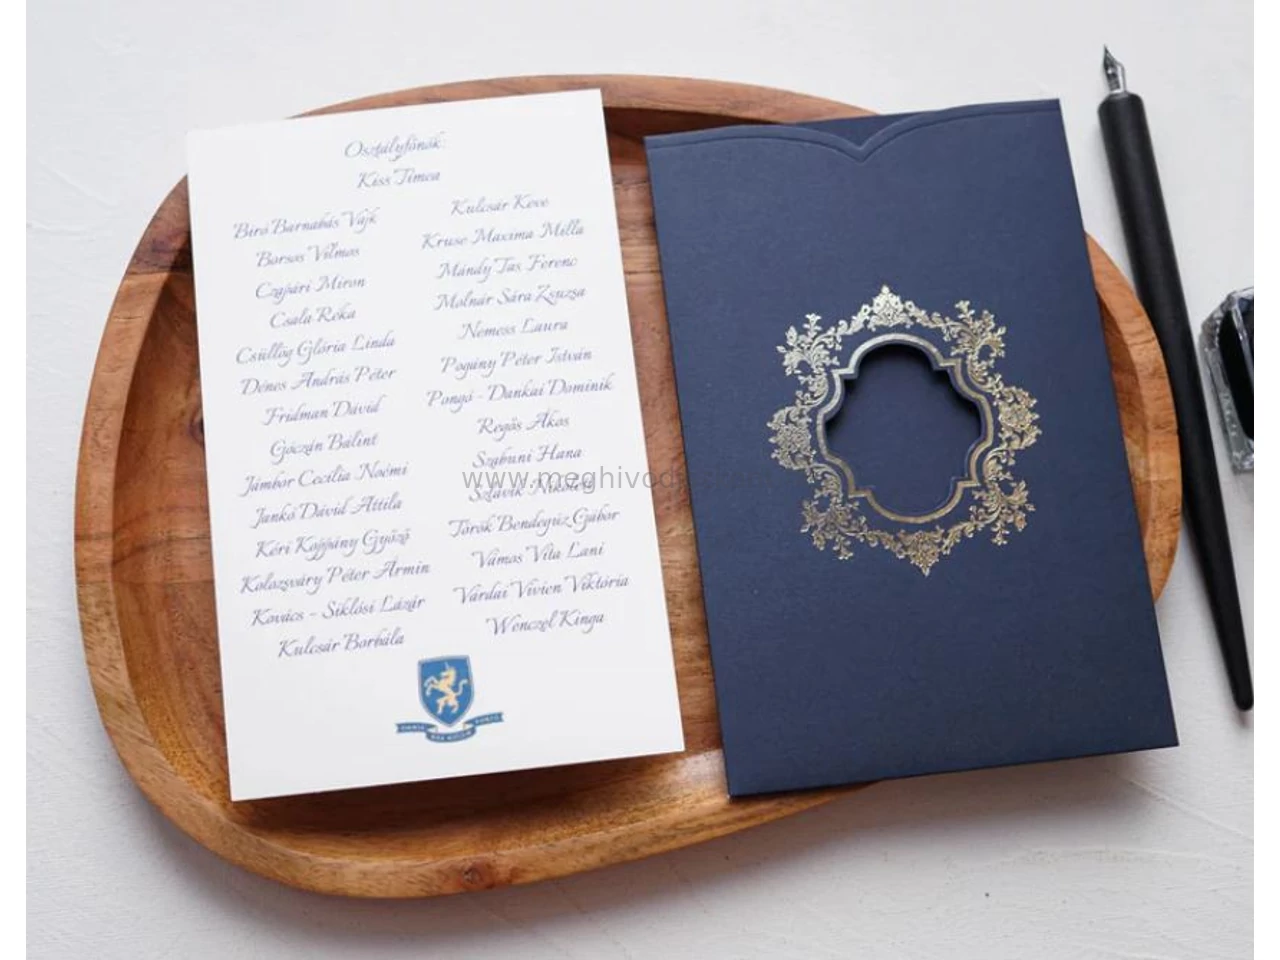 Osztályfőnök:
Kiss Tímea
Bíró Barnabás Vajk
Borsos Vilmos
Czapári Miron
Csala Réka
Csüllög Glória Linda
Dénes András Péter
Fridman Dávid
Góczán Bálint
Jámbor Cecília Noémi
Jankó Dávid Attila
Kéri Koppány Győző
Kolozsváry Péter Ármin
Kovács - Siklósi Lázár
Kulcsár Borbála
Kulcsár Keve
Kruse Maxima Milla
Mándy Tas Ferenc
Molnár Sára Zsuzsa
Nemess Laura
Pogány Péter István
Pongó - Dankai Dominik
Regős Ákos
Szabuni Hana
Szlávik Nikolett
Török Bendegúz Gábor
Vámos Vita Lani
Várdai Vivien Viktória
Wenczel Kinga